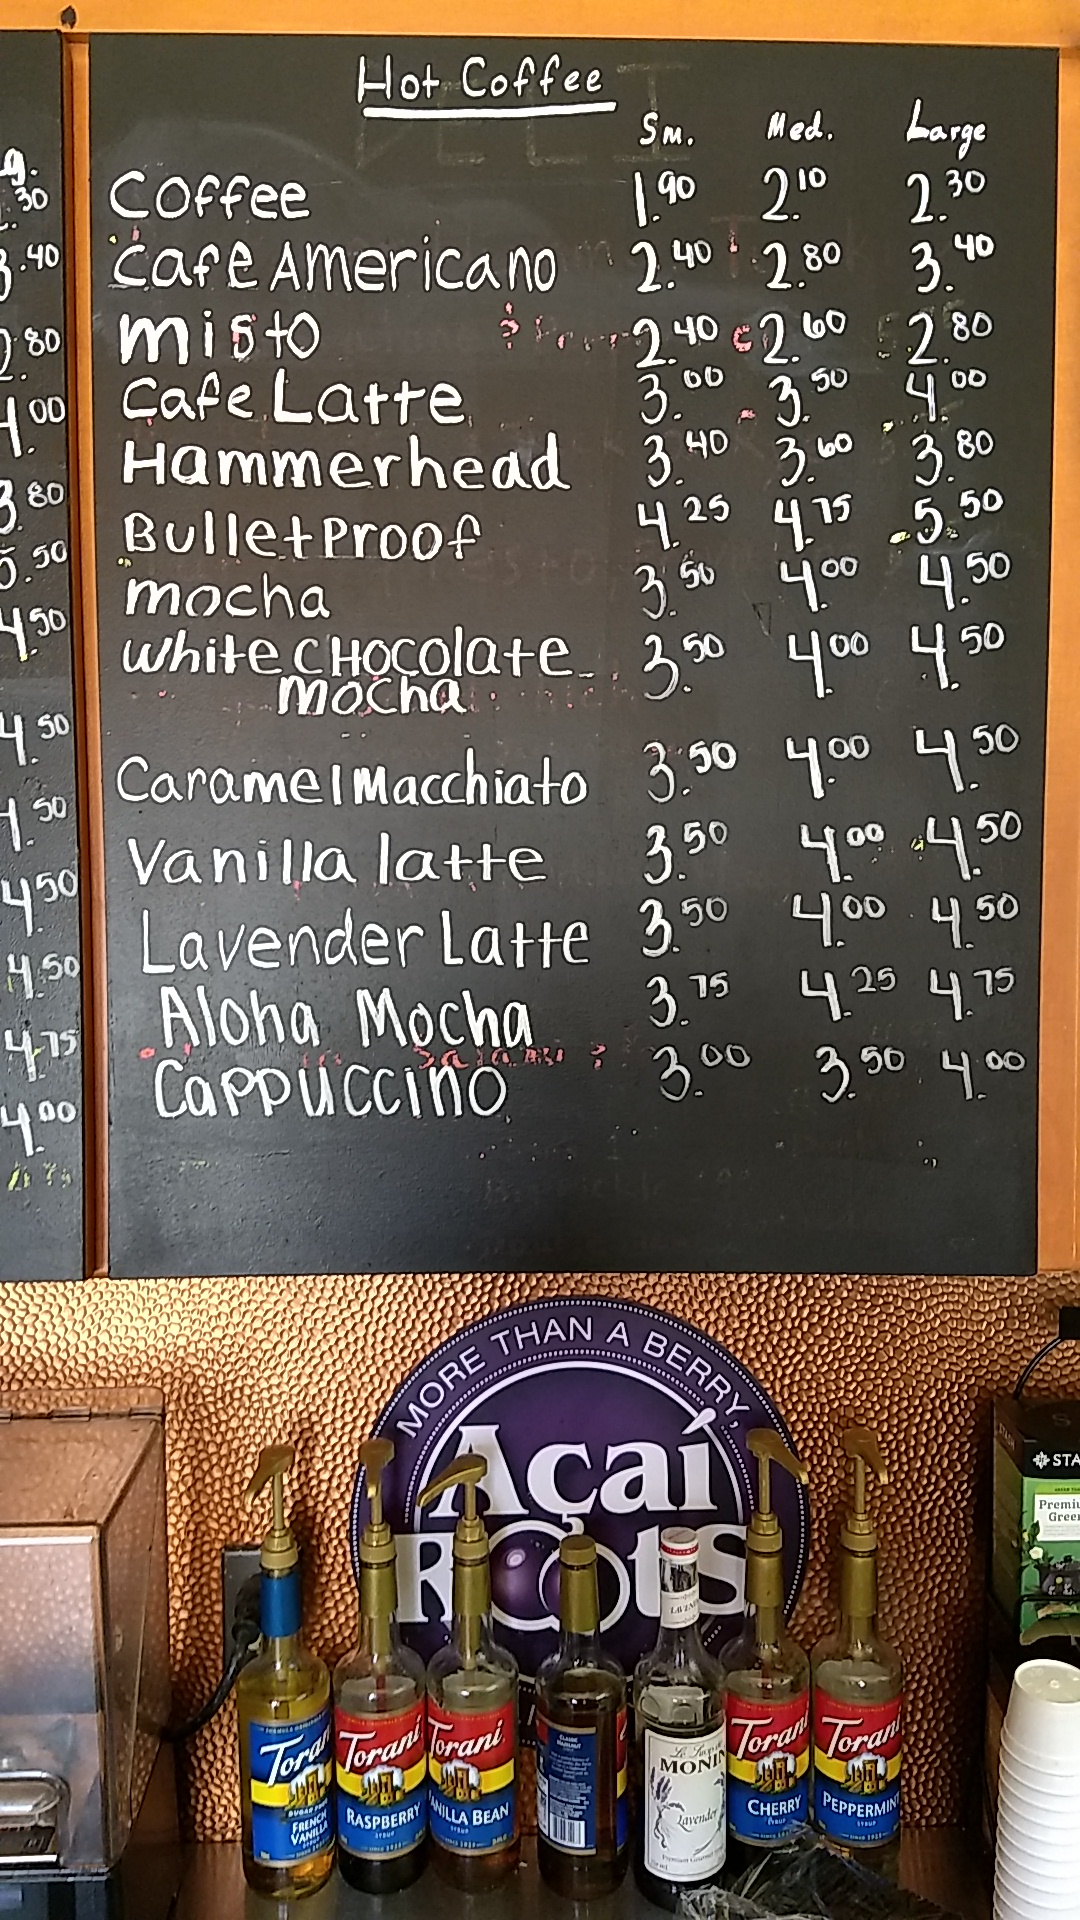 Hot Coffee
Sm. Med. Large
Coffee 1.90 2.10 2.30
Cafe Americano 2.40 2.80 3.40
misto 2.40 2.60 2.80
Cafe Latte 3.00 3.50 4.00
Hammerhead 3.40 3.60 3.80
BulletProof 4.25 4.75 5.50
mocha 3.50 4.00 4.50
white CHocolate 3.50 4.00 4.50
mocha
Caramel Macchiato 3.50 4.00 4.50
Vanilla latte 3.50 4.00 4.50
Lavender Latte 3.50 4.00 4.50
Aloha Mocha 3.75 4.25 4.75
Cappuccino 3.00 3.50 4.00
g.
.30
3.40
2.80
4.00
3.80
5.50
4.50
4.50
4.50
4.50
4.50
4.75
4.00
MORE THAN A BERRY,
Açaí
Roots
STA
Premiu
Green
LAVEN
Torani
SUGAR FREE
FRENCH
VANILLA
Torani
RASPBERRY
SYRUP
Torani
VANILLA BEAN
SYRUP
CLASSIC
HAZELNUT
MONIN
Lavender
Torani
CHERRY
SYRUP
Torani
PEPPERMINT
SYRUP